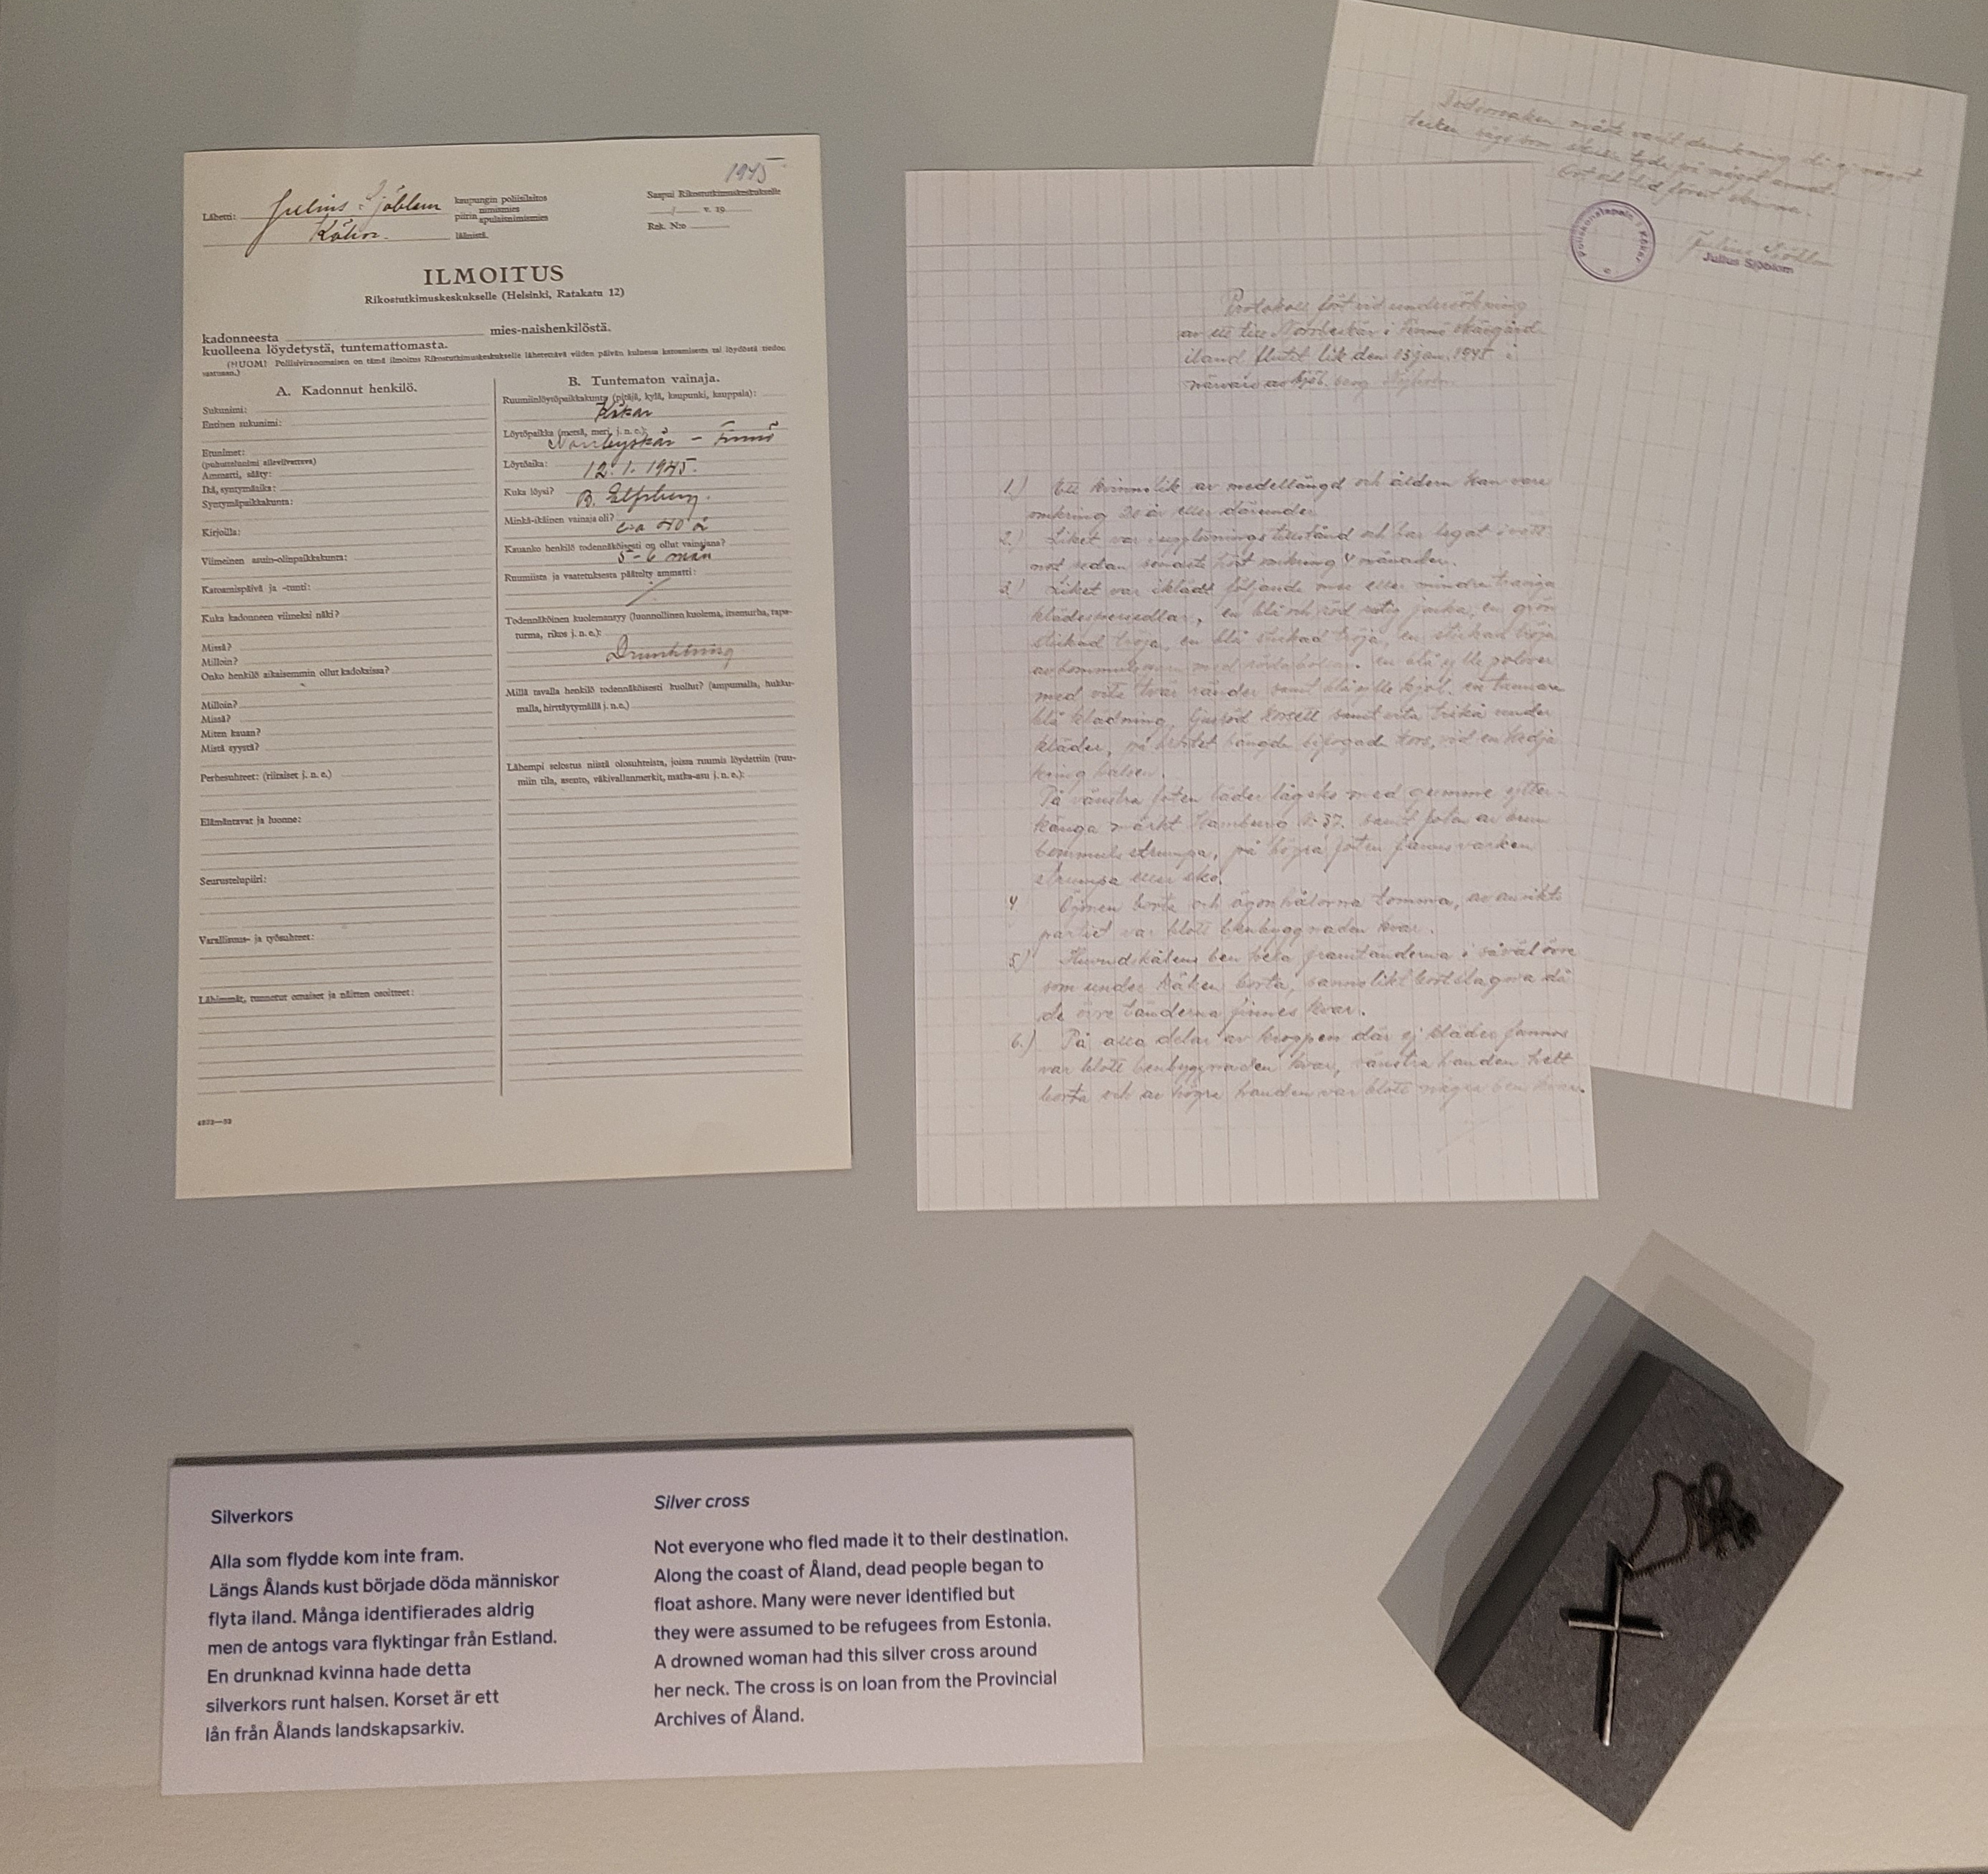 1945
Lähetti: Julius Sjöblom
Kökar.
kaupungin poliisilaitos
piirin nimismies
apulaisnimismies
läänistä.
Saapui Rikostutkimuskeskukselle
/ p. 19
Rek. N:o
ILMOITUS
Rikostutkimuskeskukselle (Helsinki, Ratakatu 12)
kadonneesta mies-naishenkilöstä.
kuolleena löydetystä, tuntemattomasta.
(HUOM! Poliisiviranomaisen on tämä ilmoitus Rikostutkimuskeskukselle lähetettävä viiden päivän kuluessa katoamisesta tai löydöstä tiedon
saatuaan.)
A. Kadonnut henkilö.
Sukunimi:
Entinen sukunimi:
Etunimet:
(puhuttelunimi alleviivattava)
Ammatti, sääty:
Ikä, syntymäaika:
Syntymäpaikkakunta:
Kirjoilla:
Viimeinen asuin-olinpaikkakunta:
Katoamispäivä ja -tunti:
Kuka kadonneen viimeksi näki?
Missä?
Milloin?
Onko henkilö aikaisemmin ollut kadoksissa?
Milloin?
Missä?
Miten kauan?
Mistä syystä?
Perhesuhteet: (riitaiset j. n. e.)
Elämäntavat ja luonne:
Seurustelupiiri:
Varallisuus- ja työsuhteet:
Lähimmät, tunnetut omaiset ja näitten osoitteet:
B. Tuntematon vainaja.
Ruumiinlöytöpaikkakunta (pitäjä, kylä, kaupunki, kauppala):
Kökar
Löytöpaikka (metsä, meri, j. n. e.):
Löytöaika: 12.1.1945.
Kuka löysi? B.
Minkä-ikäinen vainaja oli?
Kauanko henkilö todennäköisesti on ollut vainajana?
5-6 mån
Ruumiista ja vaatetuksesta päätelty ammatti:
Todennäköinen kuolemansyy (luonnollinen kuolema, itsemurha, tapa-
turma, rikos j. n. e.):
Drunkning
Millä tavalla henkilö todennäköisesti kuollut? (ampumalla, hukku-
malla, hirttäytymällä j. n. e.)
Lähempi selostus niistä olosuhteista, joissa ruumis löydettiin (ruu-
miin tila, asento, väkivallanmerkit, matka-asu j. n. e.):
Protokoll fört vid undersökning
av ett till i Finnö skärgård
iland flutit lik den 13 jan. 1945 i
närvaro av
1.) Ett kvinnolik av medellängd och åldern kan vara
omkring 20 år eller därunder
2.) Liket var i upplösningstillstånd och har legat i vatt
net sedan senaste höst omkring 4 månader.
3.) Liket var iklädt följande mer eller mindre trasiga
klädespersedlar, en blå och röd rutig jacka, en grön
stickad tröja, en blå stickad tröja, en stickad tröja
av en blå ylle polover
med vita tvär ränder samt blå ylle kjol. en tunnare
blå klädning, ljusröd korsett samt vita trikå under
kläder, på bröstet hängde bifogade kors, vid en kedja
kring halsen.
På vänstra foten läder lågsko med gummi ytter-
känga märkt Hamburg samt av brun
bommuls strumpa, på högra foten fanns varken
strumpa eller sko.
4 Ögonen borta och ögonhålorna tomma, av ansikts
partiet var blott benbyggnaden kvar.
5) Huvudskålens ben hela framtänderna i såväl övre
som under käken borta, sannolikt bortslagna då
de övre tänderna finnes kvar.
6.) På alla delar av kroppen där ej kläder fanns
var blott benbyggnaden kvar, vänstra handen helt
borta och av högra handen var blott några ben kvar.
Dödsorsaken måste varit drunkning då ej något
tecken som skulle tyda på något annat.
Ort och tid förut skrivna.
Poliskonstapeln i Kökar
Julius Sjöblom
Julius Sjöblom
Silverkors
Alla som flydde kom inte fram.
Längs Ålands kust började döda människor
flyta iland. Många identifierades aldrig
men de antogs vara flyktingar från Estland.
En drunknad kvinna hade detta
silverkors runt halsen. Korset är ett
lån från Ålands landskapsarkiv.
Silver cross
Not everyone who fled made it to their destination.
Along the coast of Åland, dead people began to
float ashore. Many were never identified but
they were assumed to be refugees from Estonia.
A drowned woman had this silver cross around
her neck. The cross is on loan from the Provincial
Archives of Åland.